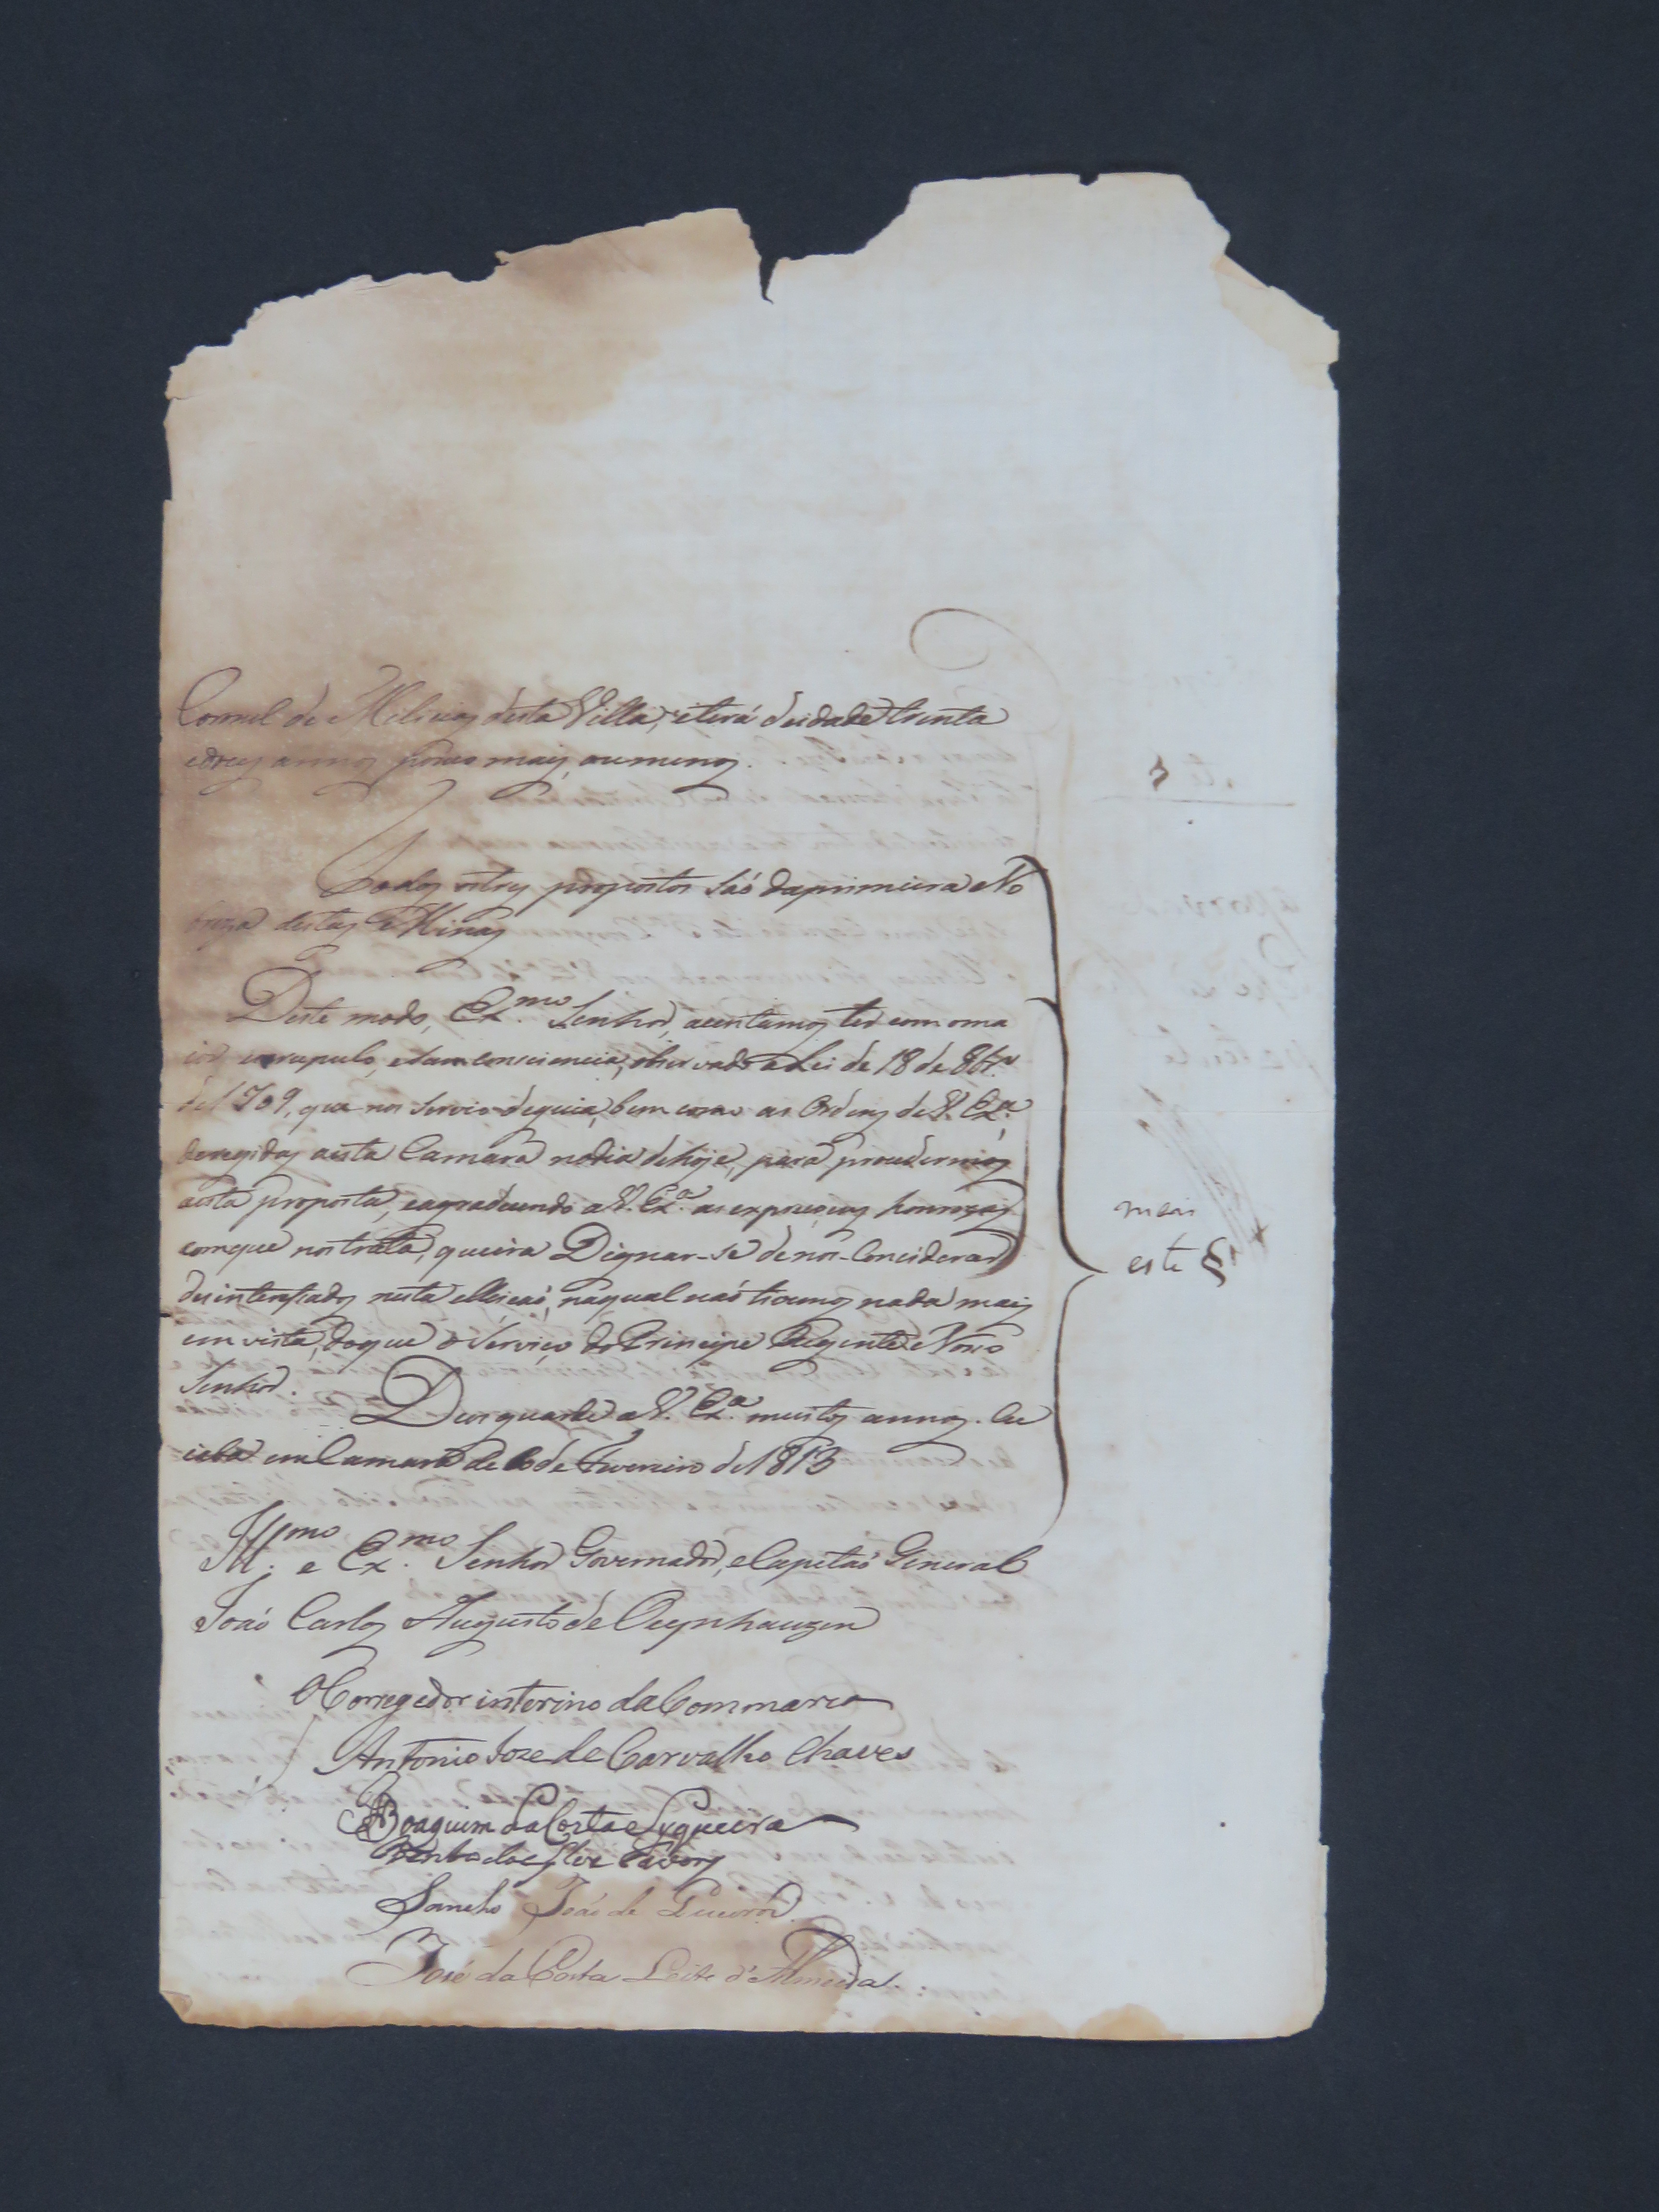 Coronel de Milicias desta Villa, e terá de idade trinta
e dous annos pouco mais, ou menos.
Todos os tres propostos saõ da primeira No
breza destas Minas
Deste modo, Ex.mo Senhor, acentamos ter com o ma
ior escrupulo, e sam consciencia, observado a Lei de 18 de 8br.o
de 1709, que nos servio de guia, bem como as Ordens de V. Ex.a
deregidas a esta Camara no dia de hoje, para procedermos
a esta proposta, e agradecendo a V. Ex.a as expreçoens honrozas
com que nos trata, queira Dignar-se de nos Conciderar
desinteressados nesta elleicaõ, na qual naõ tivemos nada mais
em vista, do que o Serviço do Principe Regente Nosso
Senhor.
Deus guarde a V. Ex.a muitos annos. Cu
iabá em Camara de 6 de Fevereiro de 1813
Ill.mo e Ex.mo Senhor Governador, e Capitaõ General
Joaõ Carlos Augusto de Oeynhauzen
O Corregedor interino da Commarca
Antonio Joze de Carvalho Chaves
Joaquim da Costa e Syqueira
Bento
Sancho Joaõ de Queiroz
José da Costa Leite d'Almeida
mais
este §